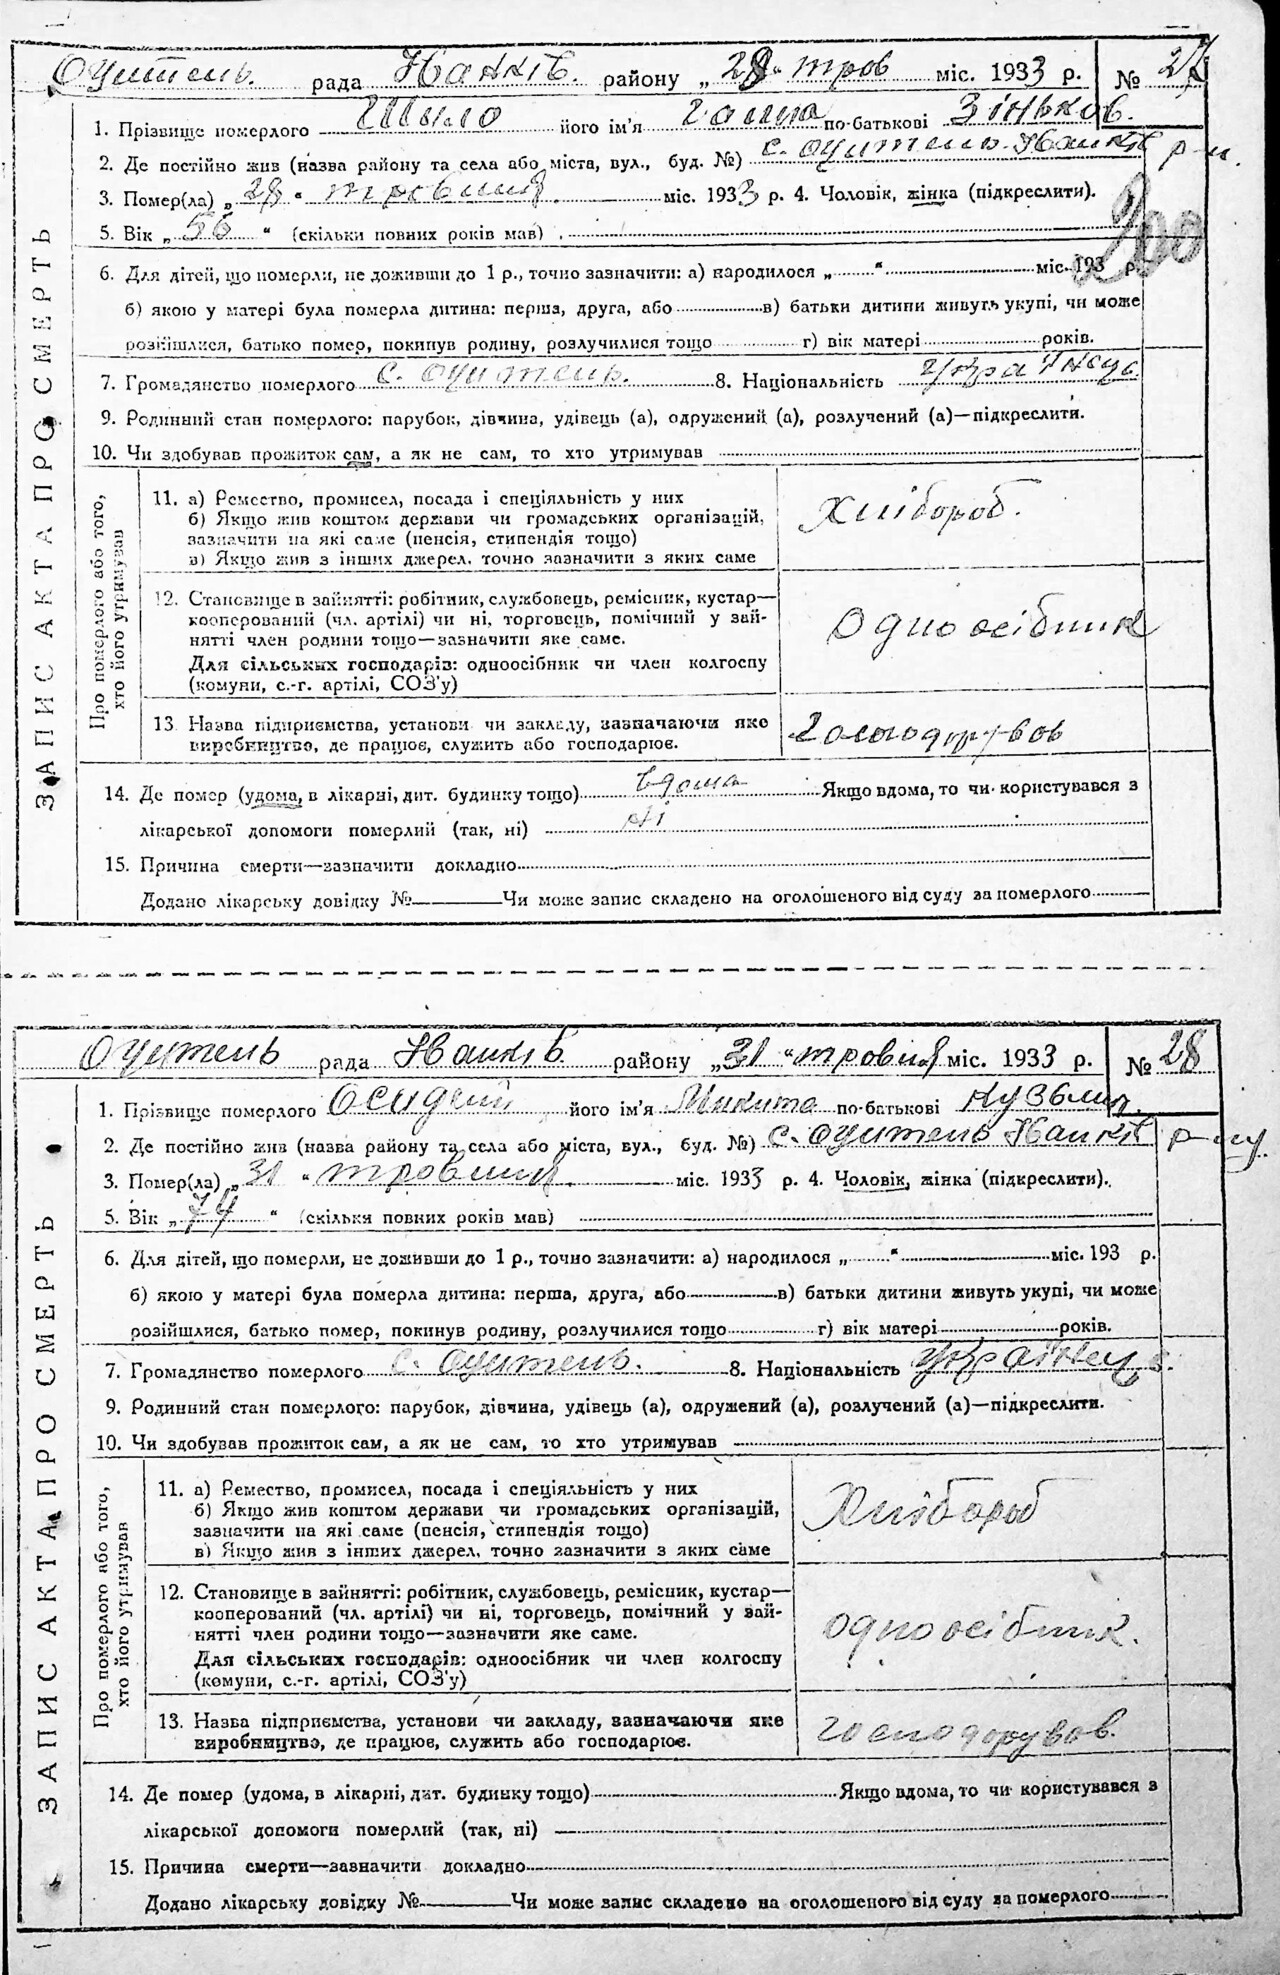 Оцитель. рада Іванків. району „28" трав міс. 1933 р. № 27
1. Прізвище померлого Шило його ім'я Ганна по-батькові Зіньков.
2. Де постійно жив (назва району та села або міста, вул., буд. №) с. Оцитель Іванків р-н.
3. Помер(ла) „28" травня міс. 1933 р. 4. Чоловік, жінка (підкреслити).
5. Вік „56" (скільки повних років мав)
200
6. Для дітей, що померли, не доживши до 1 р., точно зазначити: а) народилося „ " міс. 193 р.
б) якою у матері була померла дитина: перша, друга, або в) батьки дитини живуть укупі, чи може
розійшлися, батько помер, покинув родину, розлучилися тощо г) вік матері років.
7. Громадянство померлого с. Оцитель. 8. Національність Українець.
9. Родинний стан померлого: парубок, дівчина, удівець (а), одружений (а), розлучений (а)—підкреслити.
10. Чи здобував прожиток сам, а як не сам, то хто утримував
ЗАПИС АКТА ПРО СМЕРТЬ
Про померлого або того,
хто його утримував
11. а) Ремество, промисел, посада і спеціяльність у них
б) Якщо жив коштом держави чи громадських організацій,
зазначити на які саме (пенсія, стипендія тощо)
в) Якщо жив з інших джерел, точно зазначити з яких саме
Хлібороб.
12. Становище в зайнятті: робітник, службовець, ремісник, кустар—
кооперований (чл. артілі) чи ні, торговець, помічний у зай-
нятті член родини тощо—зазначити яке саме.
Для сільських господарів: одноосібник чи член колгоспу
(комуни, с.-г. артілі, СОЗ'у)
Одноосібник
13. Назва підприємства, установи чи закладу, зазначаючи яке
виробництво, де працює, служить або господарює.
Господарував
14. Де помер (удома, в лікарні, дит. будинку тощо) вдома Якщо вдома, то чи користувався з
лікарської допомоги померлий (так, ні) ні
15. Причина смерти—зазначити докладно
Додано лікарську довідку № Чи може запис складено на оголошеного від суду за померлого
Оцитель рада Іванків. району „31" травня міс. 1933 р. № 28
1. Прізвище померлого його ім'я Микита по-батькові Кузьмич.
2. Де постійно жив (назва району та села або міста, вул., буд. №) с. Оцитель Іванків р-ну.
3. Помер(ла) „31" травня міс. 1933 р. 4. Чоловік, жінка (підкреслити).
5. Вік „74" (скільки повних років мав)
6. Для дітей, що померли, не доживши до 1 р., точно зазначити: а) народилося „ " міс. 193 р.
б) якою у матері була померла дитина: перша, друга, або в) батьки дитини живуть укупі, чи може
розійшлися, батько помер, покинув родину, розлучилися тощо г) вік матері років.
7. Громадянство померлого с. Оцитель. 8. Національність Українець.
9. Родинний стан померлого: парубок, дівчина, удівець (а), одружений (а), розлучений (а)—підкреслити.
10. Чи здобував прожиток сам, а як не сам, то хто утримував
ЗАПИС АКТА ПРО СМЕРТЬ
Про померлого або того,
хто його утримував
11. а) Ремество, промисел, посада і спеціяльність у них
б) Якщо жив коштом держави чи громадських організацій,
зазначити на які саме (пенсія, стипендія тощо)
в) Якщо жив з інших джерел, точно зазначити з яких саме
Хлібороб
12. Становище в зайнятті: робітник, службовець, ремісник, кустар—
кооперований (чл. артілі) чи ні, торговець, помічний у зай-
нятті член родини тощо—зазначити яке саме.
Для сільських господарів: одноосібник чи член колгоспу
(комуни, с.-г. артілі, СОЗ'у)
одноосібник.
13. Назва підприємства, установи чи закладу, зазначаючи яке
виробництво, де працює, служить або господарює.
господарував.
14. Де помер (удома, в лікарні, дит. будинку тощо) Якщо вдома, то чи користувався з
лікарської допомоги померлий (так, ні)
15. Причина смерти—зазначити докладно
Додано лікарську довідку № Чи може запис складено на оголошеного від суду за померлого